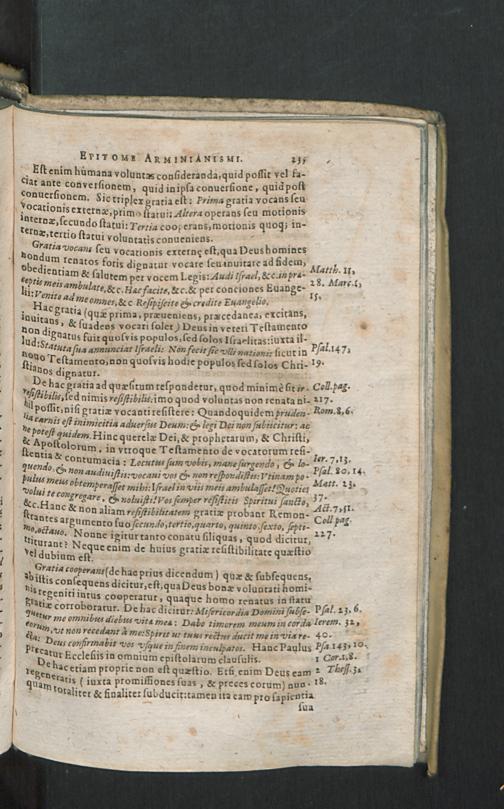 EPITOME ARMINIANISMI. 235
Est enim humana voluntas consideranda, quid possit vel fa-
ciat ante conversionem, quid in ipsa conuersione, quid post
conuersionem. Sic triplex gratia est: Prima gratia vocans seu
vocationis externæ, primo statui: Altera operans seu motionis
internæ, secundo statui: Tertia cooperans, motionis quoq; in-
ternæ, tertio statui voluntatis conueniens.
Gratia vocans seu vocationis externę est, qua Deus homines
nondum renatos foris dignatur vocare seu inuitare ad fidem,
obedientiam & salutem per vocem Legis: Audi Israel, &c. in præ-
ceptis meis ambulate, &c. Hac facite, &c. & per conciones Euange-
lii: Venite ad me omnes, &c. Resipiscite & credite Euangelio.
Matth. 11,
28. Marc. 1,
15.
Hac gratia (quæ prima, præueniens, præcedanea, excitans,
inuitans, & suadens vocari solet) Deus in veteri Testamento
non dignatus fuit quosvis populos, sed solos Israelitas: iuxta il-
lud: Statuta sua annunciat Israeli: Non fecit sic vlli nationi: sicut in
nouo Testamento, non quosvis hodie populos sed solos Chri-
stianos dignatur.
Psal. 147,
19.
De hac gratia ad quæsitum respondetur, quod minimè sit ir-
resistibilis, sed nimis resistibilis: imo quod voluntas non renata ni-
hil possit, nisi gratiæ vocanti resistere: Quandoquidem pruden-
tia carnis est inimicitia aduersus Deum: & legi Dei non subiicitur: ac
ne potest quidem. Hinc querelæ Dei, & prophetarum, & Christi,
& Apostolorum, in vtroque Testamento de vocatorum resi-
stentia & contumacia: Locutus sum vobis, mane surgendo, & lo-
quendo, & non audiuistis: vocaui vos & non respondistis: Vtinam po-
pulus meus obtemperasset mihi: Israel in viis meis ambulasset! Quoties
volui te congregare, & noluisti! Vos semper resistitis Spiritui sancto,
&c. Hanc & non aliam resistibilitatem gratiæ probant Remon-
strantes argumento suo secundo, tertio, quarto, quinto, sexto, septi-
mo, octauo. Nonne igitur tanto conatu siliquas, quod dicitur,
triturant? Neque enim de huius gratiæ resistibilitate quæstio
vel dubium est.
Coll. pag.
217.
Rom. 8, 6.
Ier. 7, 13.
Psal. 80, 14.
Matt. 23,
37.
Act. 7, 51.
Coll. pag.
227.
Gratia cooperans (de hac prius dicendum) quæ & subsequens,
ab istis consequens dicitur, est, qua Deus bonæ voluntati homi-
nis regeniti intus cooperatur, quaque homo renatus in statu
gratiæ corroboratur. De hac dicitur: Misericordia Domini subse-
quetur me omnibus diebus vita mea: Dabo timorem meum in corda
eorum, vt non recedant à me: Spiritus tuus rectus ducit me in via re-
cta: Deus confirmabit vos vsque in finem inculpatos. Hanc Paulus
precatur Ecclesiis in omnium epistolarum clausulis.
Psal. 23, 6.
Ierem. 32,
40.
Psa. 143, 10.
1 Cor. 1, 8.
De hac etiam proprie non est quæstio. Etsi enim Deus eam
regeneratis (iuxta promissiones suas, & preces eorum) nun-
quam totaliter & finaliter subducit: tamen ita eam pro sapientia
2 Thess. 3,
18.
sua